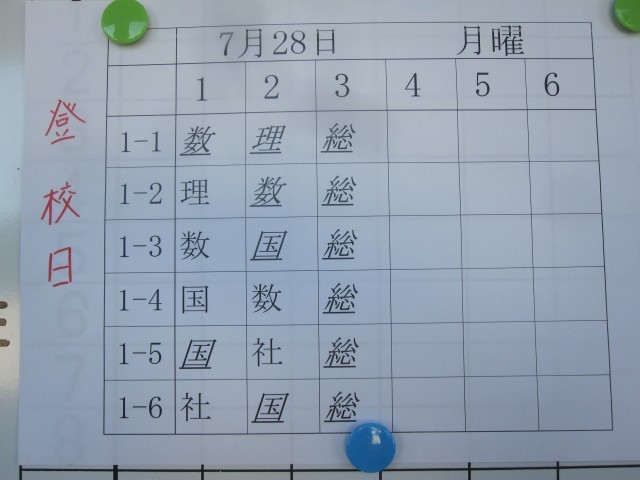 登校日
7月28日 月曜
1 2 3 4 5 6
1-1 数 理 総
1-2 理 数 総
1-3 数 国 総
1-4 国 数 総
1-5 国 社 総
1-6 社 国 総